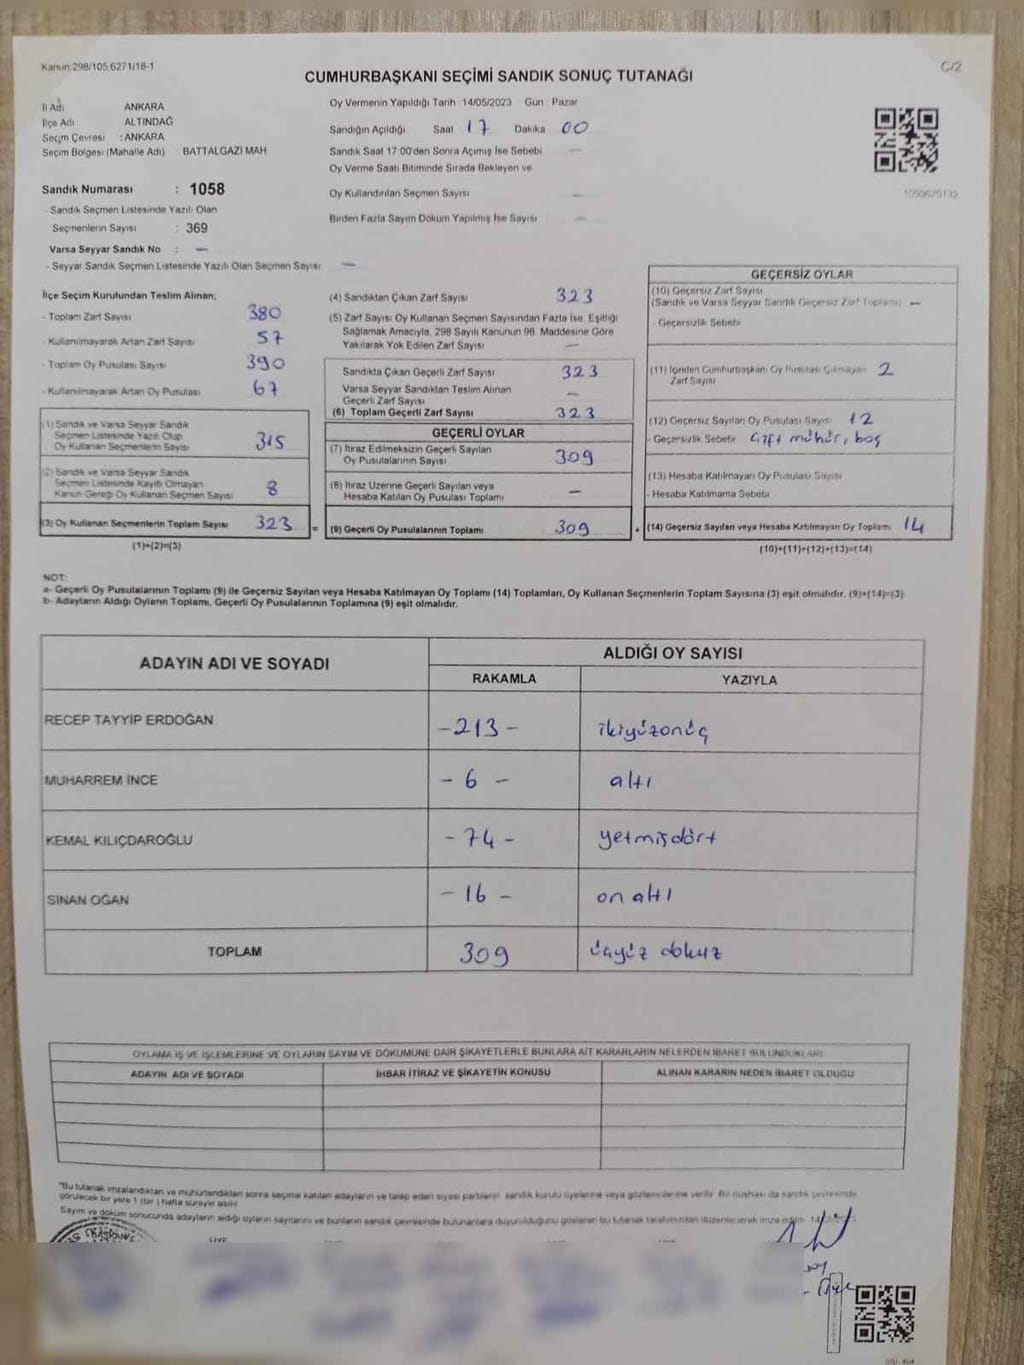 Kanun:298/105,6271/18-1
C/2
CUMHURBAŞKANI SEÇİMİ SANDIK SONUÇ TUTANAĞI
İl Adı ANKARA
İlçe Adı ALTINDAĞ
Seçim Çevresi :ANKARA
Seçim Bölgesi (Mahalle Adı) BATTALGAZI MAH
Sandık Numarası : 1058
- Sandık Seçmen Listesinde Yazılı Olan
Seçmenlerin Sayısı : 369
Varsa Seyyar Sandık No : —
- Seyyar Sandık Seçmen Listesinde Yazılı Olan Seçmen Sayısı —
Oy Vermenin Yapıldığı Tarih 14/05/2023 Gün : Pazar
Sandığın Açıldığı Saat 17 Dakika 00
Sandık Saat 17:00'den Sonra Açımış İse Sebebi —
Oy Verme Saati Bitiminde Sırada Bekleyen ve
Oy Kullandırılan Seçmen Sayısı —
Birden Fazla Sayım Döküm Yapılmış İse Sayısı —
İlçe Seçim Kurulundan Teslim Alınan;
- Toplam Zarf Sayısı 380
- Kullanılmayarak Artan Zarf Sayısı 57
- Toplam Oy Pusulası Sayısı 390
- Kullanılmayarak Artan Oy Pusulası 67
(1) Sandık ve Varsa Seyyar Sandık
Seçmen Listesinde Yazılı Olup
Oy Kullanan Seçmenlerin Sayısı 315
(2) Sandık ve Varsa Seyyar Sandık
Seçmen Listesinde Kayıtlı Olmayan
Kanun Gereği Oy Kullanan Seçmen Sayısı 8
(3) Oy Kullanan Seçmenlerin Toplam Sayısı 323 =
(1)+(2)=(3)
(4) Sandıktan Çıkan Zarf Sayısı 323
(5) Zarf Sayısı Oy Kullanan Seçmen Sayısından Fazla İse, Eşitliği
Sağlamak Amacıyla, 298 Sayılı Kanunun 98. Maddesine Göre
Yakılarak Yok Edilen Zarf Sayısı —
Sandıkta Çıkan Geçerli Zarf Sayısı 323
Varsa Seyyar Sandıktan Teslim Alınan
Geçerli Zarf Sayısı —
(6) Toplam Geçerli Zarf Sayısı 323
GEÇERLİ OYLAR
(7) İtiraz Edilmeksizin Geçerli Sayılan
Oy Pusulalarının Sayısı 309
(8) İtiraz Üzerine Geçerli Sayılan veya
Hesaba Katılan Oy Pusulası Toplamı —
(9) Geçerli Oy Pusulalarının Toplamı 309 +
GEÇERSİZ OYLAR
(10) Geçersiz Zarf Sayısı
(Sandık ve Varsa Seyyar Sandık Geçersiz Zarf Toplamı) —
- Geçersizlik Sebebi
(11) İçinden Cumhurbaşkanı Oy Pusulası Çıkmayan 2
Zarf Sayısı
(12) Geçersiz Sayılan Oy Pusulası Sayısı 12
- Geçersizlik Sebebi Çift mühür, boş
(13) Hesaba Katılmayan Oy Pusulası Sayısı
- Hesaba Katılmama Sebebi
(14) Geçersiz Sayılan veya Hesaba Katılmayan Oy Toplamı 14
(10)+(11)+(12)+(13)=(14)
NOT:
a- Geçerli Oy Pusulalarının Toplamı (9) ile Geçersiz Sayılan veya Hesaba Katılmayan Oy Toplamı (14) Toplamları, Oy Kullanan Seçmenlerin Toplam Sayısına (3) eşit olmalıdır. (9)+(14)=(3)
b- Adayların Aldığı Oyların Toplamı, Geçerli Oy Pusulalarının Toplamına (9) eşit olmalıdır.
ADAYIN ADI VE SOYADI ALDIĞI OY SAYISI
RAKAMLA YAZIYLA
RECEP TAYYİP ERDOĞAN -213- ikiyüzonüç
MUHARREM İNCE - 6 - altı
KEMAL KILIÇDAROĞLU -74- yetmişdört
SİNAN OĞAN -16- on altı
TOPLAM 309 üçyüz dokuz
OYLAMA İŞ VE İŞLEMLERİNE VE OYLARIN SAYIM VE DÖKÜMÜNE DAİR ŞİKAYETLERLE BUNLARA AİT KARARLARIN NELERDEN İBARET BULUNDUKLARI
ADAYIN ADI VE SOYADI İHBAR İTİRAZ VE ŞİKAYETİN KONUSU ALINAN KARARIN NEDEN İBARET OLDUĞU
"Bu tutanak imzalandıktan ve mühürlendikten sonra seçime katılan adayların ve talep eden siyasi partilerin sandık kurulu üyelerine veya gözlemcilerine verilir. Bir nüshası da sandık çevresinde
görülecek bir yere 1 (bir) hafta süreyle asılır.
Sayım ve döküm sonucunda adayların aldığı oyların sayılarını ve bunların sandık çevresinde bulunanlara duyurulduğunu gösteren bu tutanak tarafımızdan düzenlenerek imza edildi.